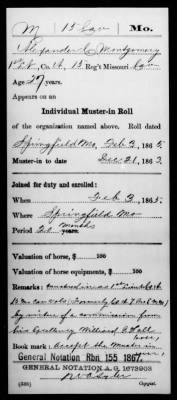 M 13 Cav Mo.
Alexander C. Montgomery
1st Lt., Co. H, 13 Reg't Missouri Cav
Age 27 years.
Appears on an
Individual Muster-in Roll
of the organization named above. Roll dated
Springfield Mo, Feb 3, 1865.
Muster-in to date Dec 21, 1862
Joined for duty and enrolled:
When Feb 3, 1865.
Where Springfield Mo
Period months years.
Valuation of horse, $ 100
Valuation of horse equipments, $ 100
Remarks: Mustered in as 1st Lieut Co H
13 Mo Cav Vols, Formerly Co H 7 Cav M.S.M.
by virtue of a commission from
his Excellency William P. Hall
Book mark: except the Muster in
General Notation Rbn 155 1867
GENERAL NOTATION A.G. 1673903
(535) Copyist.